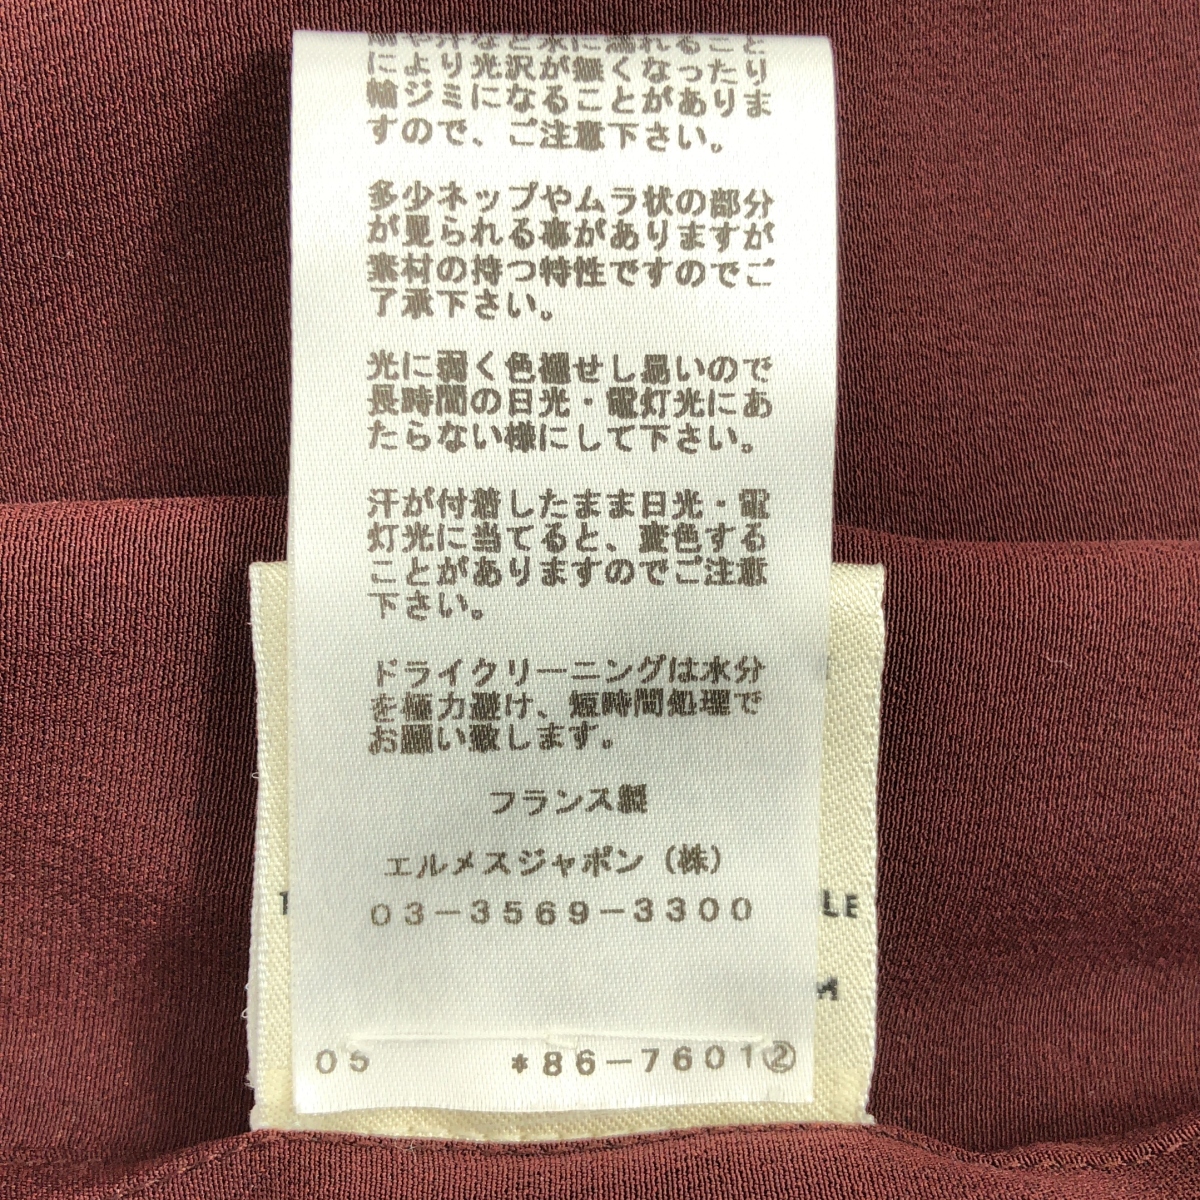 雨や汗など水に濡れること
により光沢が無くなったり
輪ジミになることがありま
すので、ご注意下さい。
多少ネップやムラ状の部分
が見られる事がありますが
素材の持つ特性ですのでご
了承下さい。
光に弱く色褪せし易いので
長時間の日光・電灯光にあ
たらない様にして下さい。
汗が付着したまま日光・電
灯光に当てると、変色する
ことがありますのでご注意
下さい。
ドライクリーニングは水分
を極力避け、短時間処理で
お願い致します。
フランス製
エルメスジャポン（株）
03-3569-3300
LE
05 *86-7601②